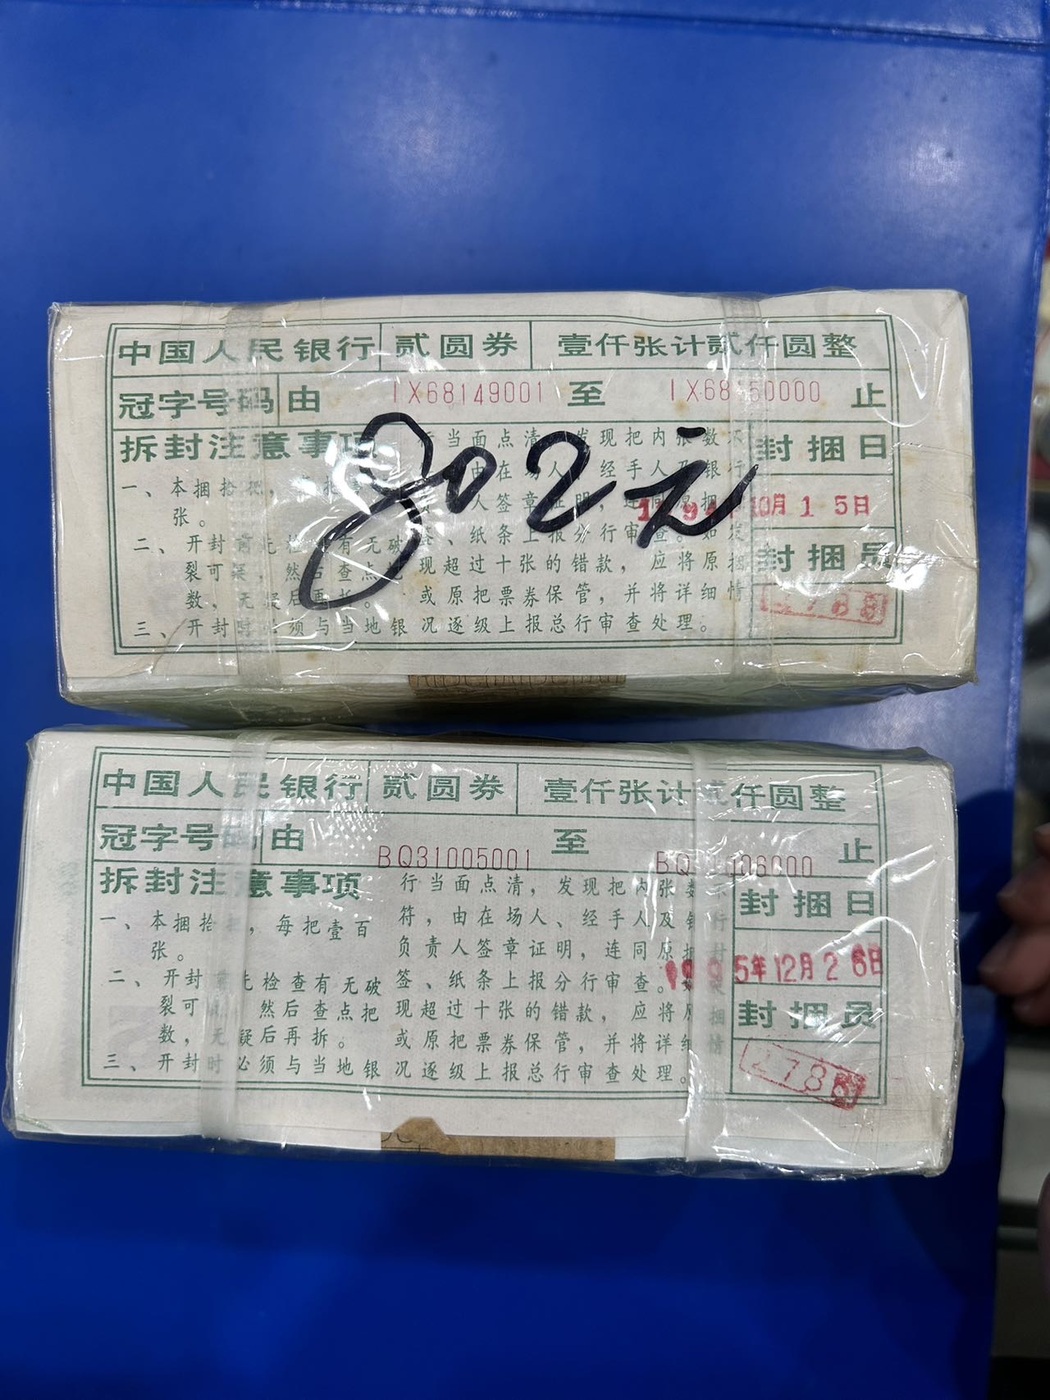 中国人民银行 贰圆券 壹仟张计贰仟圆整
冠字号码 由 IX68149001 至 止
拆封注意事项
802元
当面点清 发现把内张数
封捆日
10月15日
封捆员
一、本捆拾
张。
二、开封
裂可 然后查点
数，无
三、开封 与当地银
签、纸条上报分行审查。
现超过十张的错款，应将原
或原把票券保管，并将详细情
况逐级上报总行审查处理。
中国人民银行 贰圆券 壹仟张计贰仟圆整
冠字号码 由 BQ31005001 至 止
拆封注意事项
一、本捆拾 每把壹百
张。
二、开封 检查有无破
裂可 然后查点把
数，无疑后再拆。
三、开封时必须与当地银
行当面点清，发现把内张数
符，由在场人、经手人及银行
负责人签章证明，连同原
签、纸条上报分行审查。
现超过十张的错款，应将
或原把票券保管，并将详细情
况逐级上报总行审查处理。
封捆日
5年12月26日
封捆员